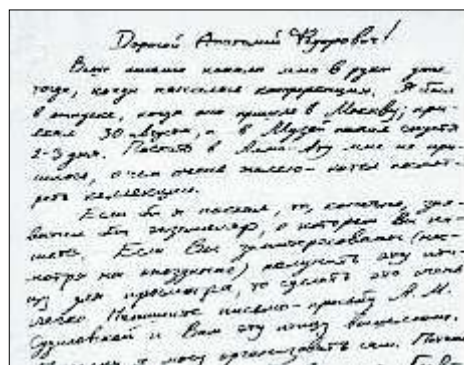 Дорогой Анатолий Федорович!
Ваше письмо попало мне в руки уже
тогда, когда началась конференция. Я был
в отпуске, когда оно пришло в Москву, при-
ехал 30 Августа, а в Музей попал спустя
2-3 дня. Поехать в Алма-Ату мне не при-
шлось, о чем очень жалею - хотел посмот-
реть коллекции.
Если бы я поехал, то, конечно, зах-
ватил бы экземпляр, о котором Вы пи-
шете. Если Вы заинтересованы (нес-
мотря на опоздание) получить эту пти-
цу для просмотра, то сделать это очень
легко. Напишите письмо-просьбу А.М.
Судиловской и Вам эту птицу вышлют.
я могу организовать сам.